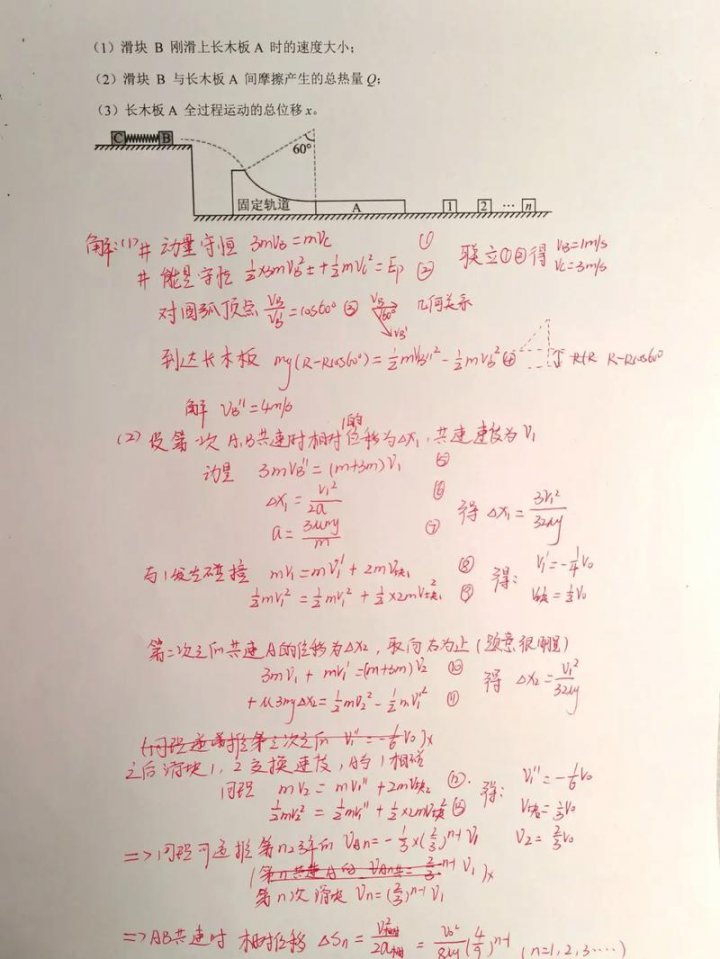 （1）滑块 B 刚滑上长木板 A 时的速度大小;
（2）滑块 B 与长木板 A 间摩擦产生的总热量 Q;
（3）长木板 A 全过程运动的总位移 x。
C B
60°
固定轨道 A 1 2 … n
解:(1) 动量守恒 3mv_B = mv_C ①
能量守恒 ½×3mv_B² + ½mv_C² = Ep ② 联立①②得 v_B=1m/s
v_C=3m/s
对圆弧顶点 v_B/v_B' = cos60° ③ v_B 60° v_B' 几何关系
到达长木板 mg(R-Rcos60°) = ½mv_B''² - ½mv_B'² ④ R-Rcos60°
解 v_B'' = 4m/s
(2) 设第一次A,B共速时相对位移的为Δx₁,共速速度为 v₁
动量 3mv_B'' = (m+3m)v₁ ⑤
Δx₁ = v₁²/2a ⑥ 得 Δx₁ = 3v₁²/32μg
a = 3μmg/m ⑦
与1发生碰撞 mv₁ = mv₁' + 2mv块₁ ⑧ 得: v₁' = -¼v₀
½mv₁² = ½mv₁'² + ½×2mv块₁² ⑨ v块 = ½v₀
第二次之后共速A的位移为Δx₂,取向右为正(题意很明显)
3mv₁ + mv₁' = (m+3m)v₂ ⑩ 得 Δx₂ = v₁²/32μg
+μ3mgΔx₂ = ½mv₂² - ½mv₁'² ⑪
之后滑块1,2交换速度,A与1相碰
同理 mv₂ = mv₁'' + 2mv块₂ ⑫ 得: v₁'' = -⅙v₀
½mv₂² = ½mv₁'' + ½×2mv块² ⑬ v块₂ = ⅓v₀
v₂ = ⅔v₀
=> 同理可递推第n次 v_An = -⅓×(⅔)ⁿ⁻¹ v₁
第n次滑块 v_n = (⅔)ⁿ⁻¹ v₁
=> AB共速时 相对位移 ΔSn = v²相对/2a相 = v₀²/8μg (4/9)ⁿ⁻¹ (n=1,2,3……)